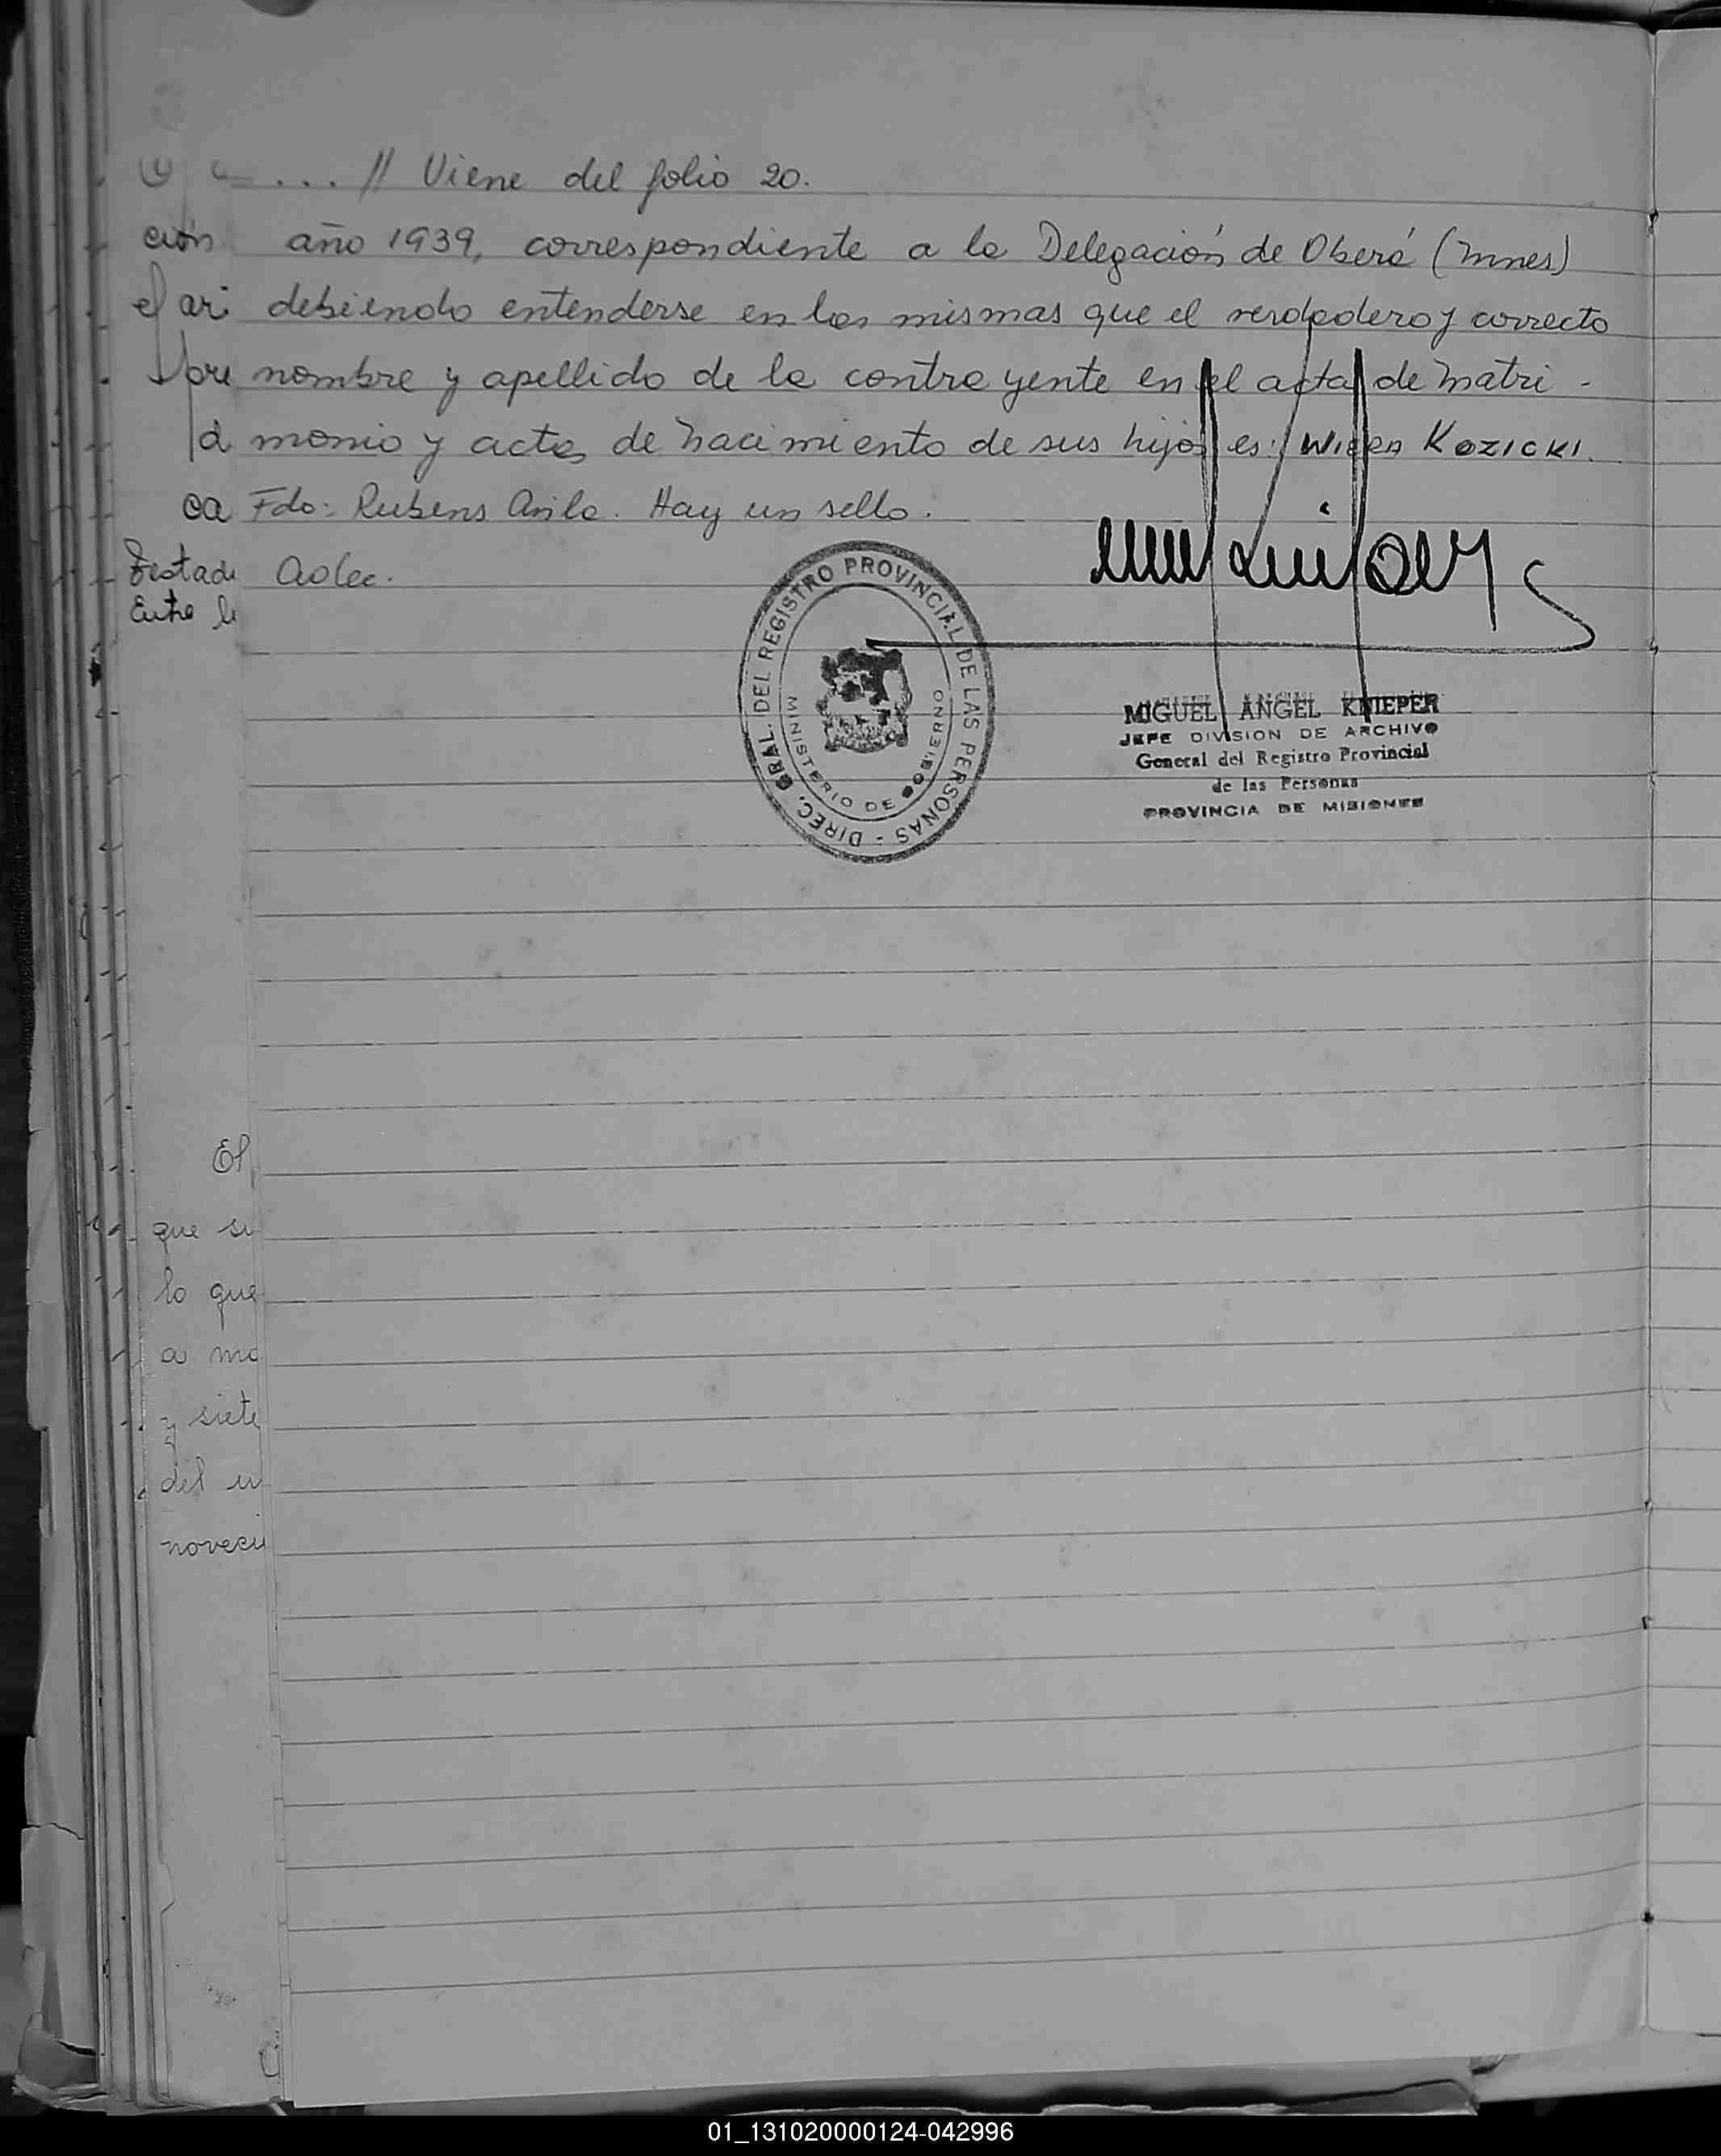 ... // Viene del folio 20.
ción año 1939, correspondiente a la Delegación de Oberá (Mnes)
debiendo entenderse en las mismas que el verdadero y correcto
nombre y apellido de la contrayente en el acta de Matri-
monio y acta de Nacimiento de sus hijos es: KOZICKI.
Fdo: Rubens Avila. Hay un sello.
Testad
Entre l
DIREC. GRAL. DEL REGISTRO PROVINCIAL DE LAS PERSONAS -
MINISTERIO DE GOBIERNO
MIGUEL ANGEL KNIEPER
JEFE DIVISION DE ARCHIVO
General del Registro Provincial
de las Personas
PROVINCIA DE MISIONES
El
que su
lo que
a ma
y siete
del
noveci
01_131020000124-042996